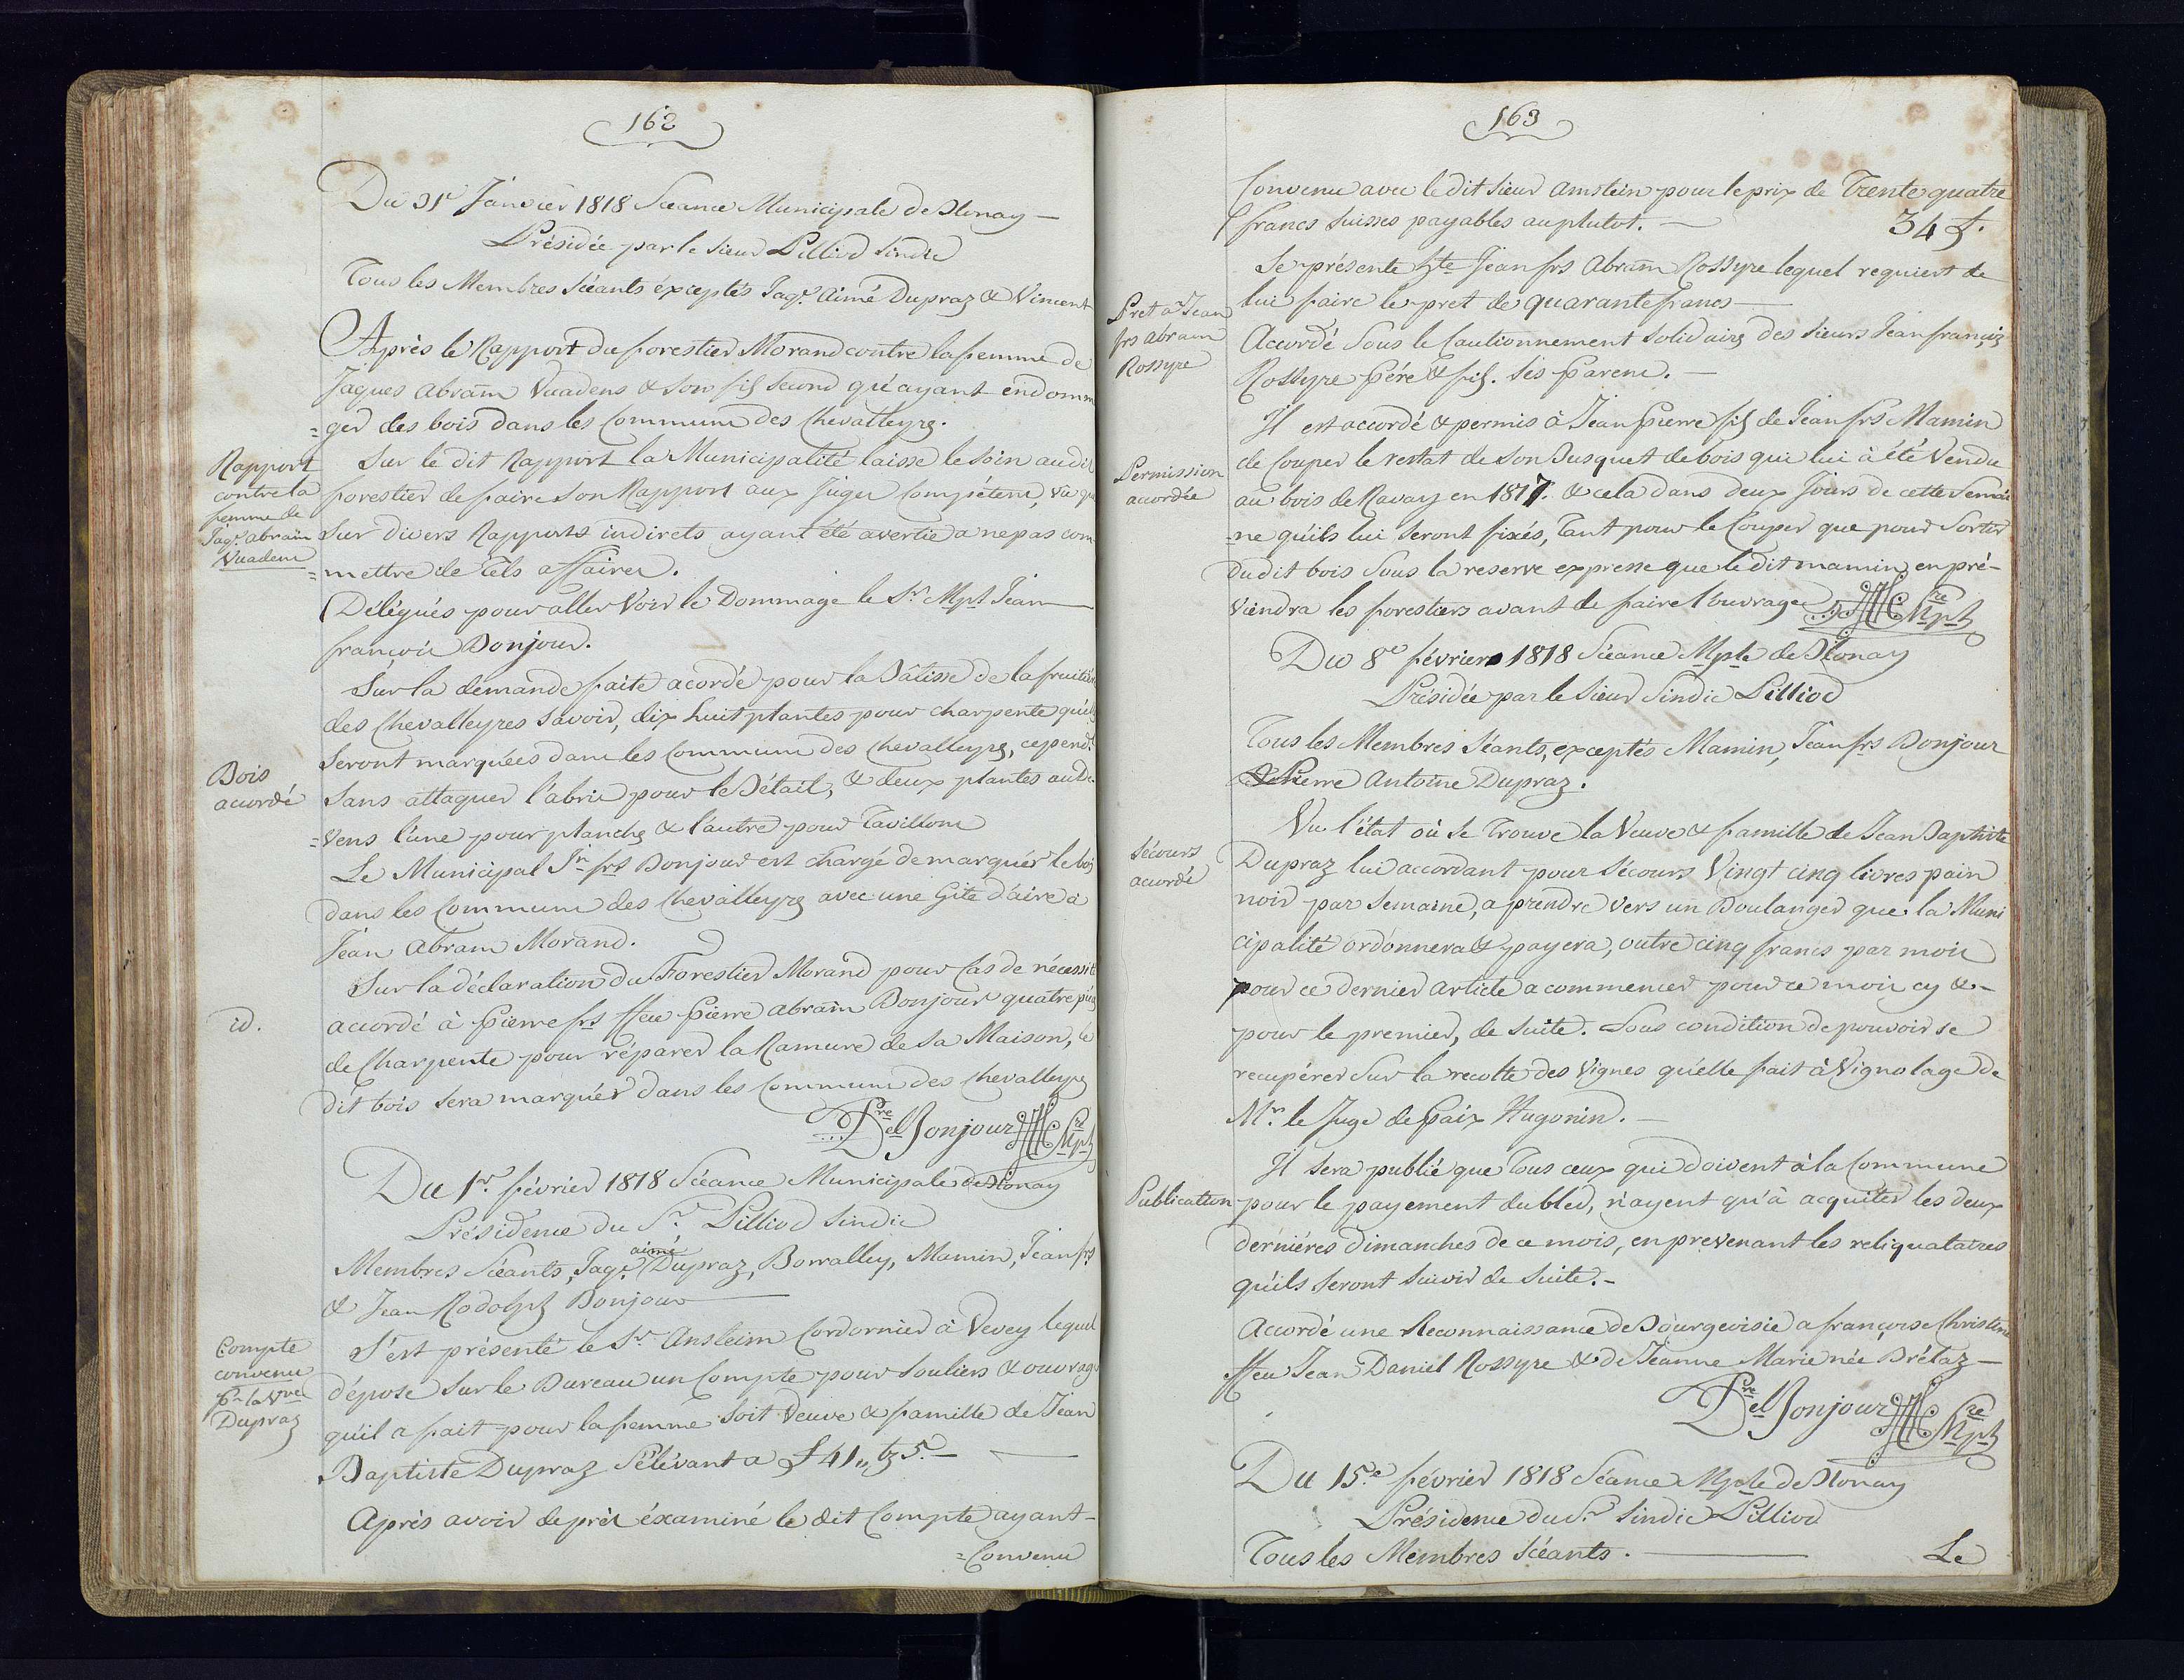 162
Du 31e Janvier 1818 Sceance Municipale de Blonay —
Présidée par le Sieur Pilliod Sindic
Tous les Membres Scéants éxceptés Jaqs. Aimé Dupraz & Vincent
Après le Rapport du forestier Morand contre la femme de
Jaques Abram Vuadens & Son fils second qu'ayant endomma
=ger des bois dans les Commune des Chevalleyres.
Rapport
contre la
femme de
Jaqs. abram
Vuadens
Sur le dit Rapport la Municipalité laisse le soin au dit
forestier de faire Son Rapport aux Juges Compétens, vu que
sur divers Rapports indirets ayant été avertie a ne pas com
=mettre de tels affaires.
Délégués pour aller Voir le Dommage le Sr. Mpal Jean
françois Bonjour.
Bois
acordé
Sur la démande faite acordé pour la Bâtisse de la fruitière
des Chevalleyres savoir, dix huit plantes pour charpente qu'ils
Seront marquées dans les Commune des Chevalleyres, cepend.t
Sans attaquer l'abri pour le Bétail, & deux plantes au De
=vens l'une pour planches & l'autre pour Tavillons
Le Municipal Jn frs Bonjour est chargé de marquér le bois
dans les Commune des Chevalleyres avec une Gite d'aire à
Jean Abram Morand.
id.
Sur la déclaration du Forestier Morand pour Cas de nécessité
accordé à Pierre frs ffeu Pierre Abram Bonjour quatre pièces
de Charpente pour réparer la Ramure de sa Maison, le
dit bois sera marquér dans les Commune des Chevalleyres
Pre el Bonjour Sre Mpal
Du 1er. février 1818 Scéance Municipale de Blonay
Présidence du Sr. Pilliod Sindic
Membres Scéants, Jaqs. aimé Dupraz, Borralley, Mamin, Jean frs
& Jean Rodolph Bonjour
Compte
convenu
pr la Vve
Dupraz
S'est présenté le Sr. Ansleim Cordornier à Vevey lequel
dépose sur le Bureau un Compte pour Souliers & ouvrage
qu'il a fait pour la femme soit Veuve & famille de Jean
Baptiste Dupraz S'élévant a £ 41,, bz 5. —
Après avoir de près éxaminé le dit Compte ayant-
=Convenu
163
Convenu avec le dit Sieur Amstein pour le prix de Trente quatre
francs Suisses payables au plutot. — 34 f.
Pret à Jean
frs abram
Rossyre
Se présente hte Jean frs Abram Rossyre lequel requiert de
lui faire le pret de quarante francs —
Accordé Sous le Cautionnement Solidaire des Sieurs Jean françois
Rossyre Pére & fils. ses Parens. —
Permission
accordée
Il est accordé & permis à Jean Pierre fils de Jean frs Mamin
de Couper le restat de Son Busquet de bois qui lui à été Vendu
au bois de Ravay en 1817. & cela dans deux Jours de cette Semai
=ne qu'ils lui Seront fixés, Tant pour le Couper que pour Sortir
du dit bois Sous la reserve expresse que le dit mamin en pré-
viendra les forestiers avant de faire l'ouvrage Sre Mpal
Du 8e février 1818 Scéance Mple de Blonay
Présidée par le Sieur Sindic Pilliod
Tous les Membres Séants, exceptés Mamin, Jean frs Bonjour
& Pierre Antoine Dupraz.
Sécours
acordé
Vu l'état où se Trouve la Veuve & famille de Jean Baptiste
Dupraz lui accordant pour Sécours Vingt cinq livres pain
noir par Semaine, a prendre vers un Boulanger que la Muni
cipalité ordonnera & payera, outre cinq francs par mois
pour ce dernier article a commencer pour ce mois cy & -
pour le premier, de suite. Sous condition de pouvoir se
recupérer Sur la recolte des Vignes qu'elle fait à Vignolage de
Mr. le Juge de Paix Hugonin. —
Publication
Il sera publié que Tous ceux qui doivent à la Commune
pour le payement du bled, n'ayent qu'à acquiter les deux
derniéres Dimanches de ce mois, en prevenant les reliquataires
qu'ils seront suivis de suite. -
Accordé une Reconnaissance de Bourgeoisie a françoise Christine
ffeu Jean Daniel Rossyre & de Jeanne Marie née Brétaz —
Pre el Bonjour Sre Mpal
Du 15e février 1818 Séance Mple de Blonay
Présidence du Sr. Sindic Pilliod
Tous les Membres Scéants. —
Le